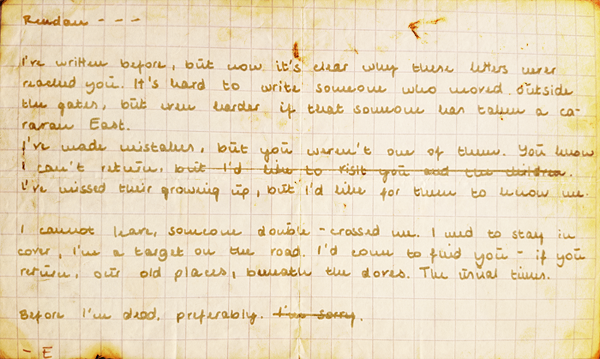 Rendan - - -
I've written before, but now it's clear why these letters never
reached you. It's hard to write someone who moved outside
the gates, but even harder if that someone has taken a ca-
ravan East.
I've made mistakes, but you weren't one of them. You know
I can't return, but I'd like to visit you and the children.
I've missed their growing up, but I'd like for them to know me.
I cannot leave, someone double-crossed me. I need to stay in
cover, I'm a target on the road. I'd come to find you - if you
return, our old places, beneath the doves. The usual times.
Before I'm dead, preferably. I'm sorry.
- E